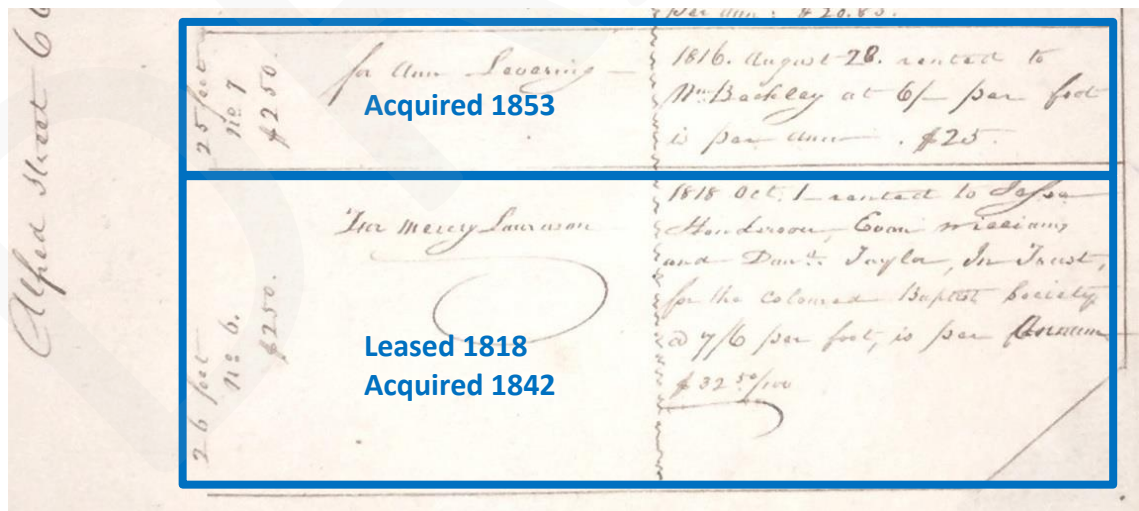 per ann : $20.83.
Alfred Street 6
25 feet
no 7
$250.
for Ann Levering
Acquired 1853
1816. August 28. rented to
Wm Backley at 6/- per foot
is per Ann . $25.
26 feet
no 6.
$250.
For Mercy Laurason
Leased 1818
Acquired 1842
1818 Oct. 1 rented to Jesse
Henderson, Evan Williams
and Danl. Taylor, In Trust,
for the Coloured Baptist Society
@ 7/6 per foot, is per Annum
$32 50/100